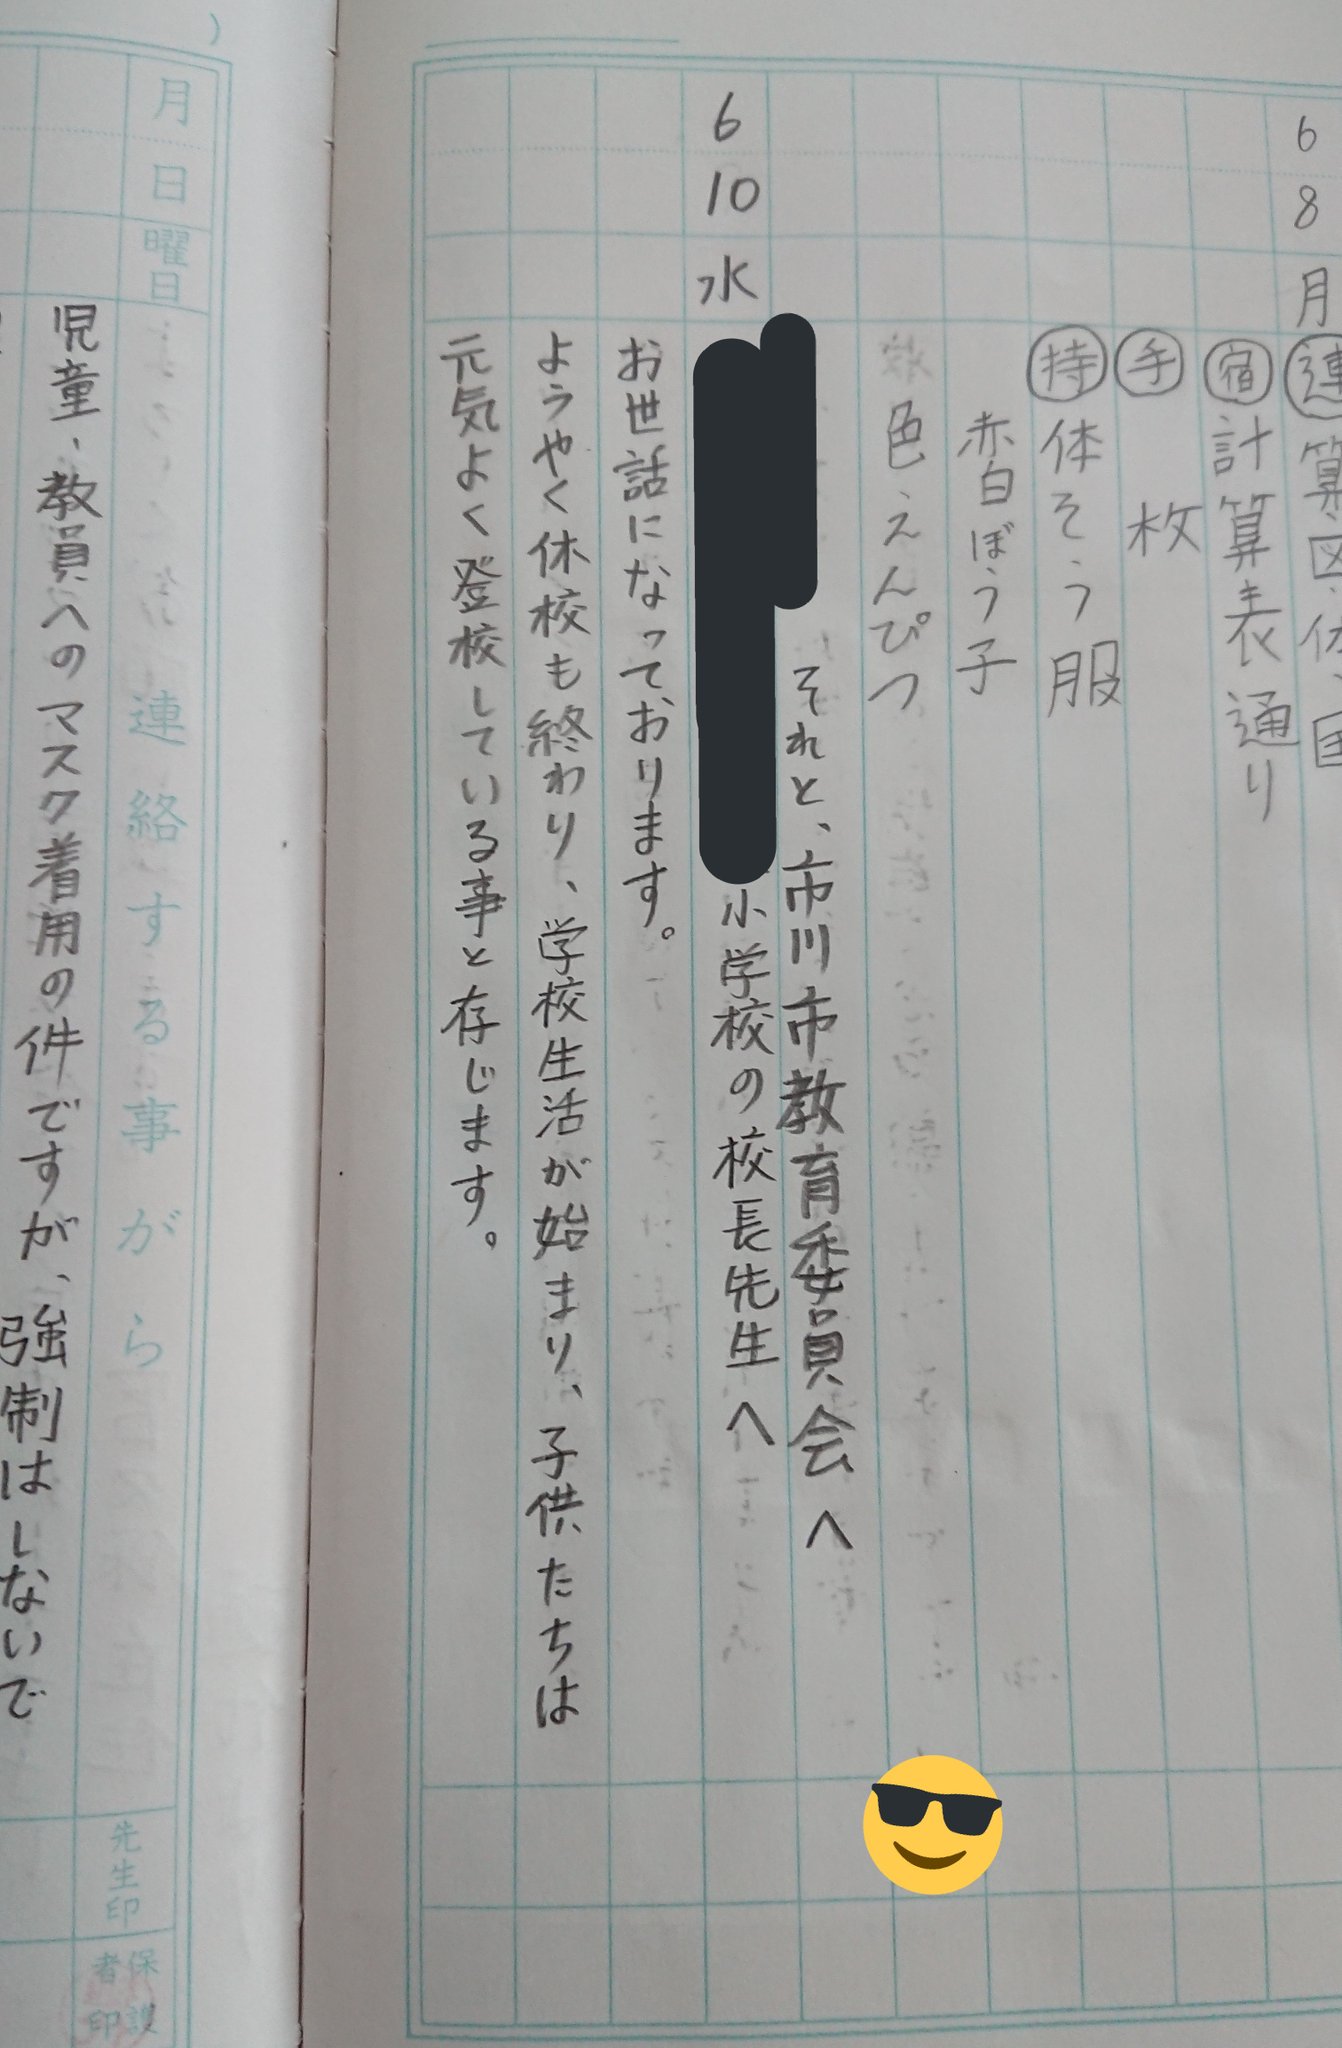 6 8 月 連 算・図・体、国
宿 計算表通り
手 枚
持 体そう服
赤白ぼう子
色えんぴつ
それと、市川市教育委員会へ
6 10 水 小学校の校長先生へ
お世話になっております。
ようやく休校も終わり、学校生活が始まり、子供たちは
元気よく登校している事と存じます。
月 日 曜日 連絡する事がら 先生印 保護者印
児童、教員へのマスク着用の件ですが、強制はしないで